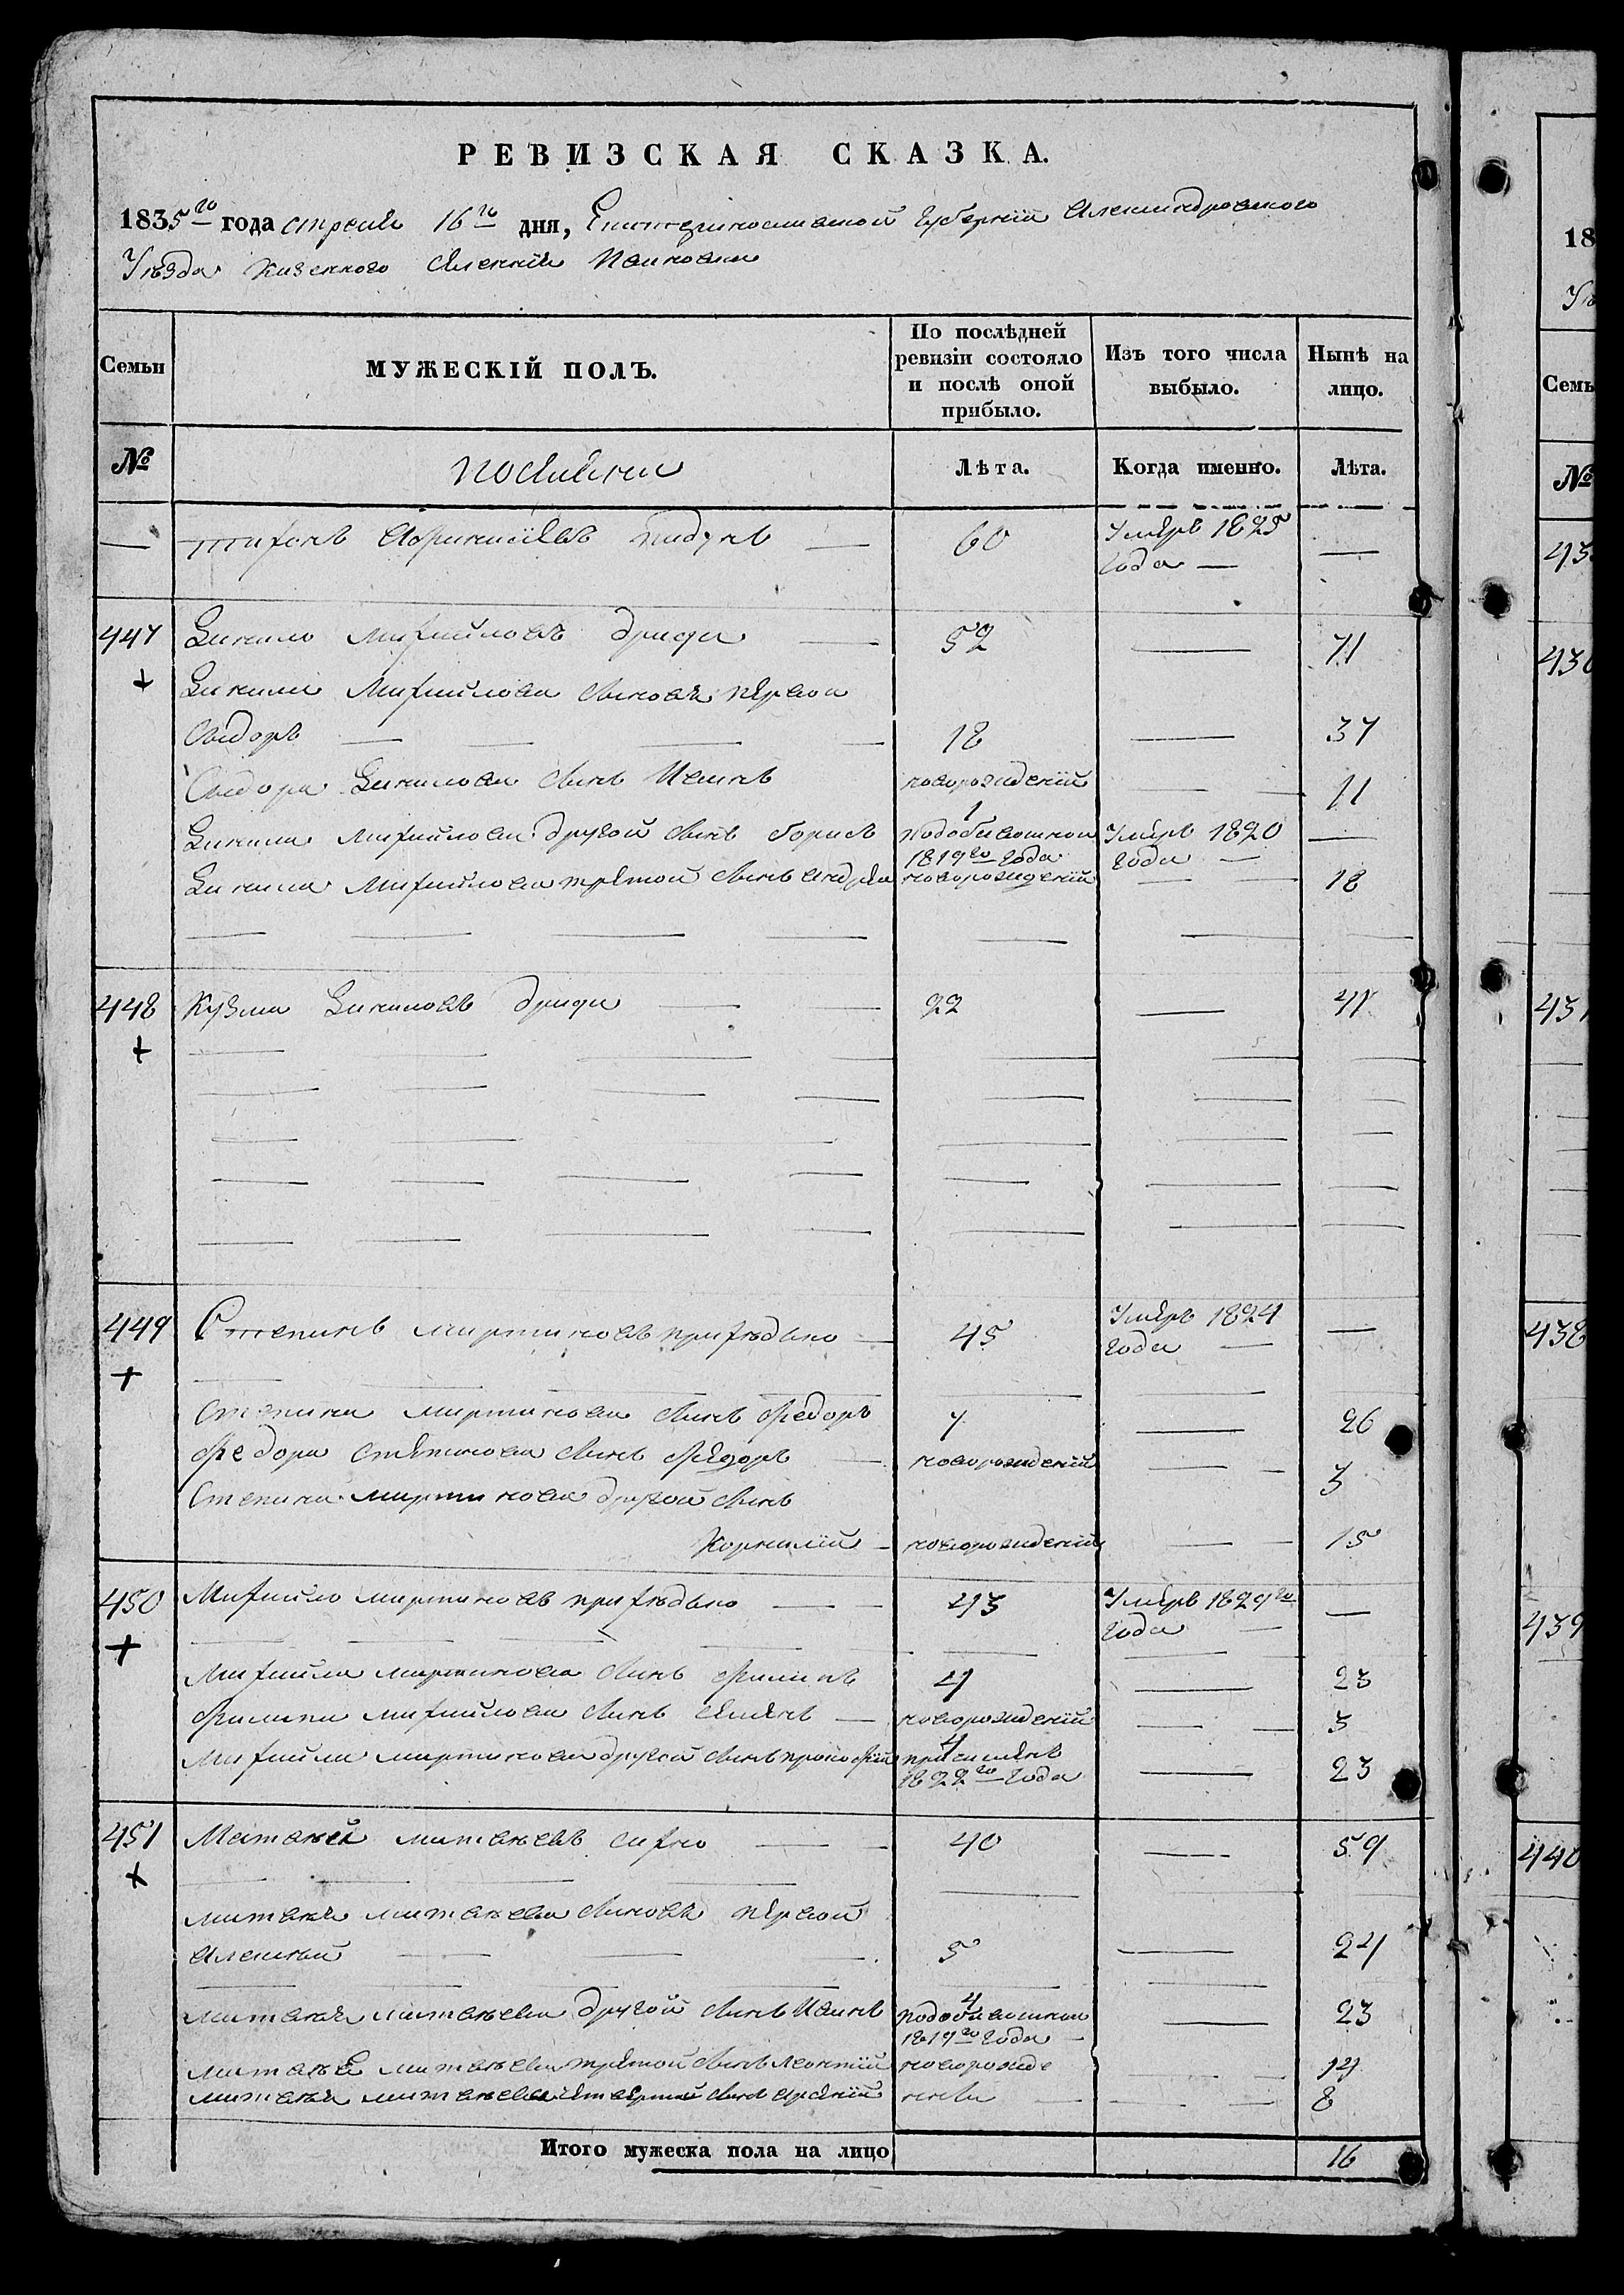 РЕВИЗСКАЯ СКАЗКА.
1835го года апреля 16го дня, Екатеринославской Губернии Александровского
Уезда казенного Селения
Семьи
МУЖЕСКІЙ ПОЛЪ.
По послѣдней ревизіи состояло и послѣ оной прибыло.
Изъ того числа выбыло.
Нынѣ на лицо.
№
Лѣта.
Когда именно.
Лѣта.
— Тихонъ — 60 Умеръ 1825 года — —
447 Данило Михайловъ — 52 — 71
+ Данила Михайлова сыновя первой
Сидоръ — 18 — 37
Сидора Данилова сынъ Иванъ новорожденій — 11
Данила Михайлова другой сынъ борисъ 1 1819го года Умеръ 1820 года — —
Данила Михайлова третой сынъ андрей новорожденій — 18
448 Кузма Даниловъ — 22 — 41
+
449 Степанъ мартиновъ приходько — 45 Умеръ 1824 года — —
+
Степана мартинова сынъ федоръ 7 — 26
федора степанова сынъ федоръ — новорожденій — 3
Степана мартинова другой сынъ
Корнилій — новорожденій — 15
450 Михайло мартиновъ приходько — 43 Умеръ 1829го года — —
+
Михайла мартинова сынъ филипъ 4 — 23
филипа михайлова сынъ семенъ — новорожденій — 3
Михайла мартинова другой сынъ прокофій 4 причисленъ 1822го года — 23
451 Матвей матвеевъ сахно — 40 — 59
+
матвея матвеева сыновя первой
алексѣй — 5 — 24
матвея матвеева другой сынъ Иванъ 4 1819го года — 23
матвея матвеева третой сынъ леонтий новорожде — 14
матвея матвеева четвертой сынъ арсений — 8
Итого мужеска пола на лицо 16
18
Семь
№
43
430
437
438
439
440